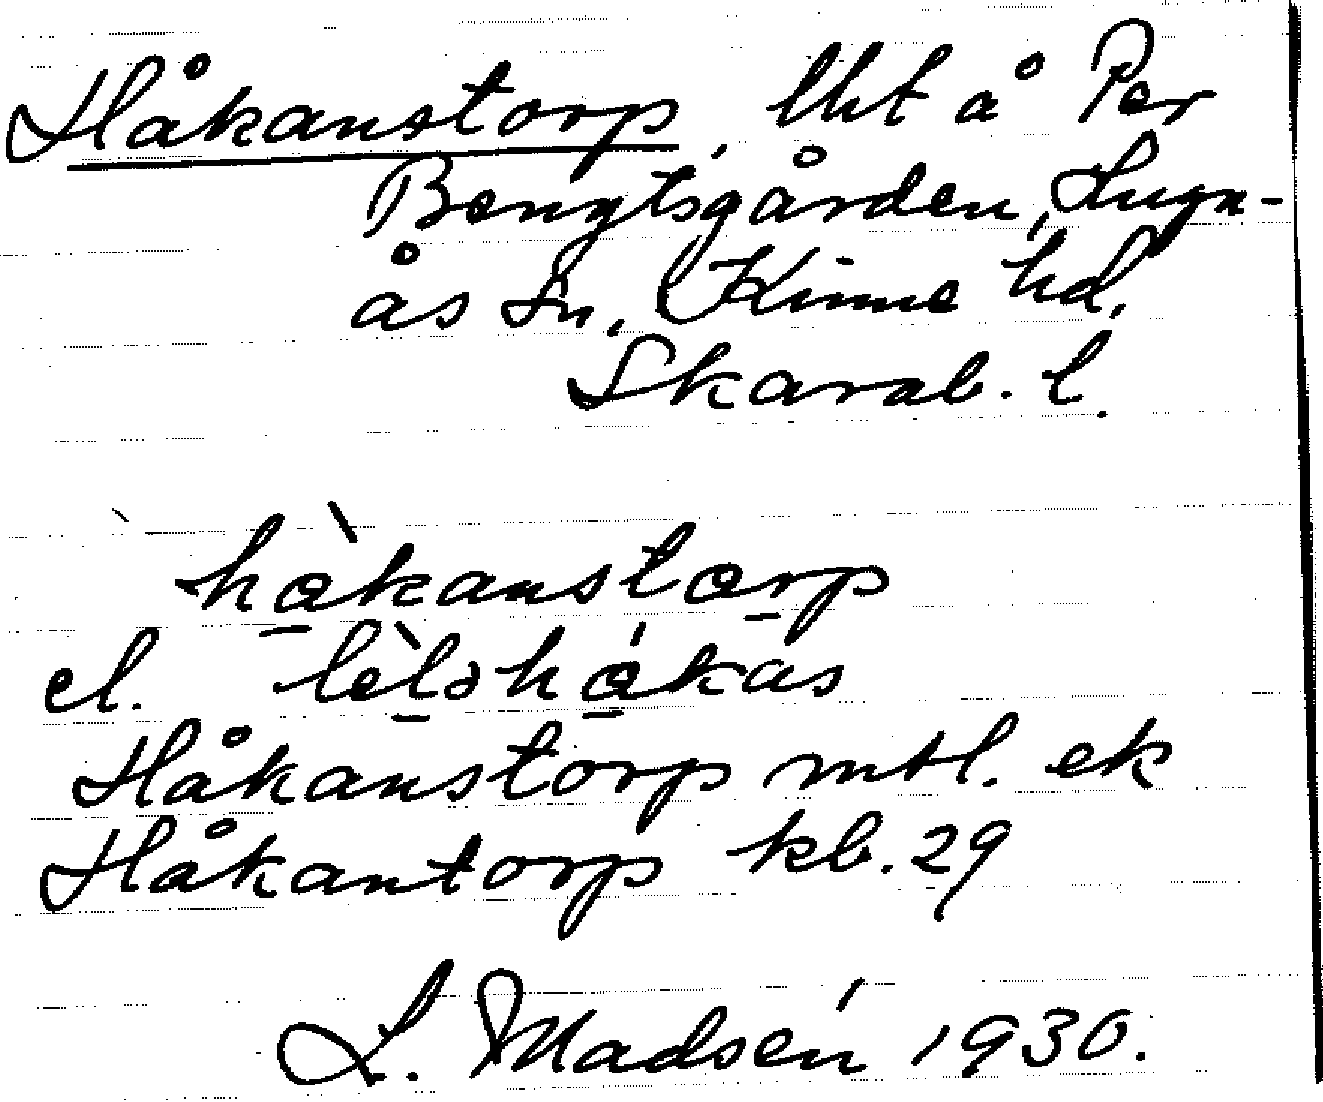 Håkanstorp, lht å Per
Bengtsgården, Fuga-
ås sn, Kinne hd,
Skarab. l.
hàkanstorp
el. lèləhákas
Håkanstorp mtl. ek
Håkantorp kb. 29
L. Madsén 1930.